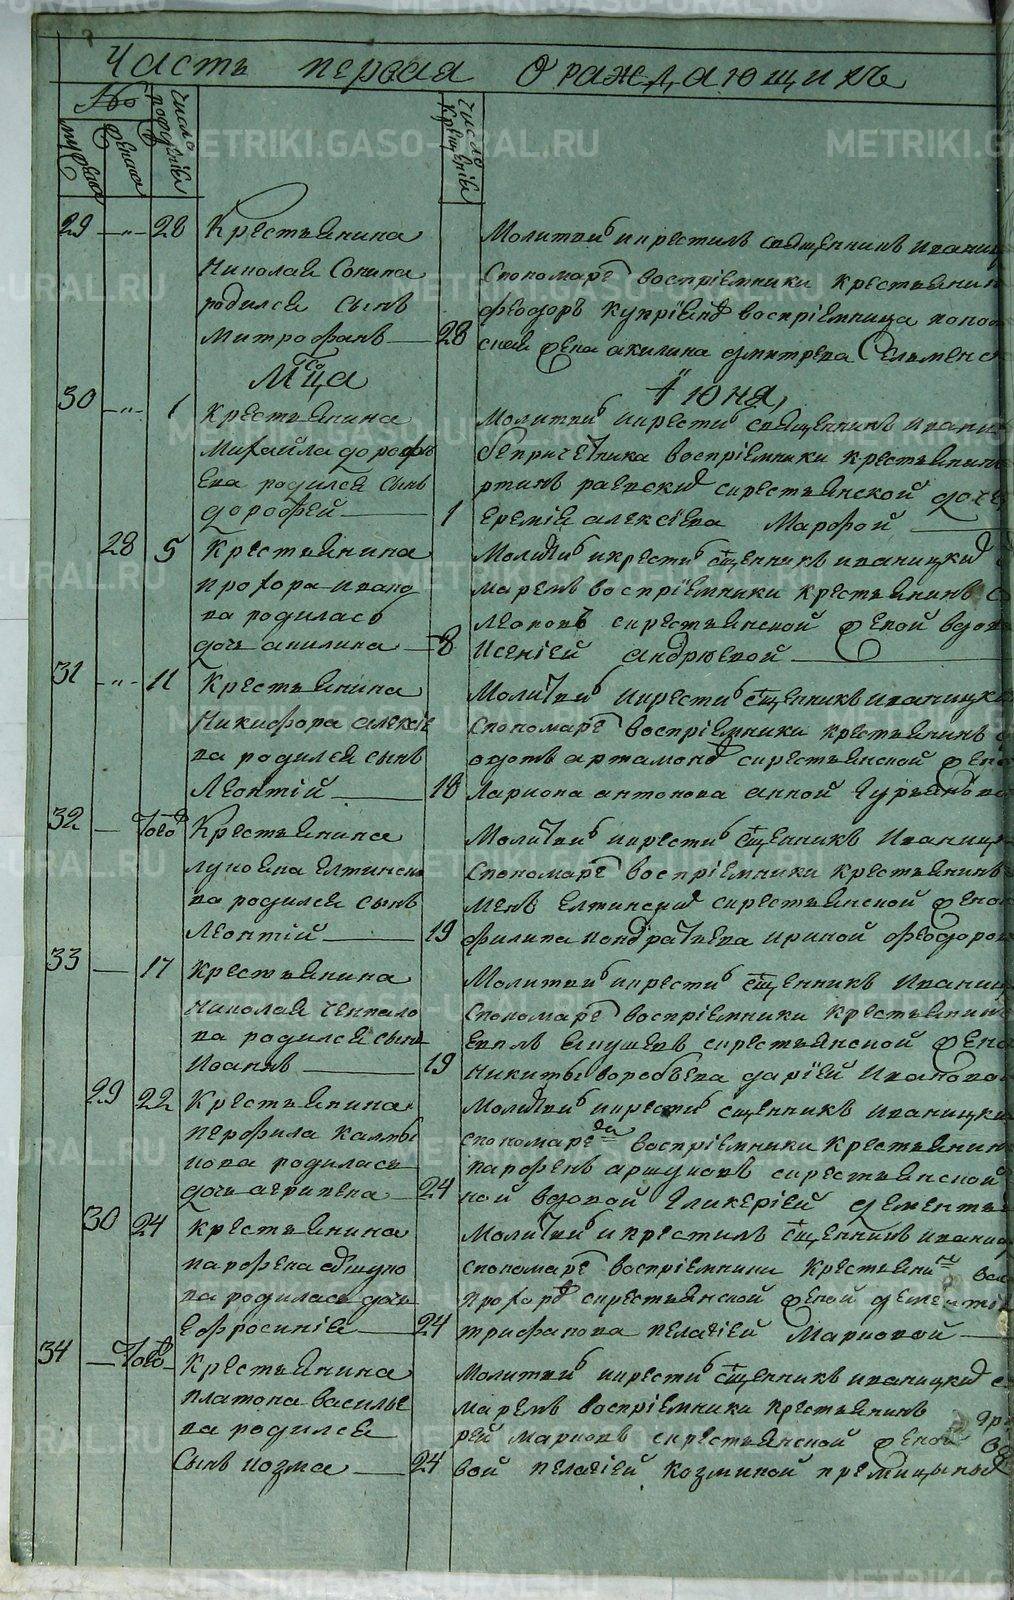 Часть первая О раждающихъ
№
число рожденія
мужеска
женска
число крещенія
29 —"— 28 Крестьянина
Николая Сонина
родился сынъ
Митрофанъ — 28
Молитвы и крестилъ священникъ Иваниц
спономаремъ воспріемники крестьянин
Феодоръ Купріянов воспріемница
жена акилина дмитрева
Мца Іюня
30 —"— 1 Крестьянина
Михайла дорофѣ
ева родился сынъ
дорофей — 1
Молитви и крести священникъ Иваниц
безпричетника воспріемники крестьянин
скрестьянской доче
Еремѣя алексѣева Марфой —
28 5 Крестьянина
Прохора Ивано
ва родилась
дочь акилина — 8
Молитви и крести сщенникъ Иваницкий
маремъ воспріемники крестьянинъ
скрестьянской женой вдов
Ксеніей андрюевой —
31 —"— 11 Крестьянина
Никифора алексѣе
ва родился сынъ
Леонтій — 18
Молитви и крести сщенникъ Иваницки
спономаремъ воспріемники крестьянинъ
артамонов скрестьянской жено
Лариона антонова анной Гурьяново
32 — Того Крестьянина
Лукояна Елтинско
ва родился сынъ
Леонтій — 19
Молитви и крести сщенникъ Иваниц
спономаремъ воспріемники крестьянинъ
менъ Елтинский скрестьянской жено
филипа Кондратьева Ириной Феодоров
33 — 17 Крестьянина
Николая
ва родился сынъ
Иоаннъ — 19
Молитви и крести сщенникъ Иваниц
спономаремъ воспріемники крестьянин
скрестьянской жено
Никиты воробьева даріей Иванова
29 22 Крестьянина
Перфила Калмы
кова родилась
дочь агрипена — 24
Молитви и крести сщенникъ Иваницки
спономаремъ воспріемники крестьянин
парфенъ аршуковъ скрестьянской
ной вдовой Гликеріей дементье
30 24 Крестьянина
парфена аршуко
ва родилась дочь
Ефросинія — 24
Молитви и крестилъ сщенникъ Иваниц
спономаремъ воспріемники крестьяни
Прохоръ скрестьянской женой дементі
трифанова пелагіей Марковой —
34 — Того Крестьянина
платона василье
ва родился
Сынъ Козма — 24
Молитви и крести сщенникъ Иваницкий с
маремъ воспріемники крестьянинъ
рей Марковъ скрестьянской женой
вой пелагіей Козминой